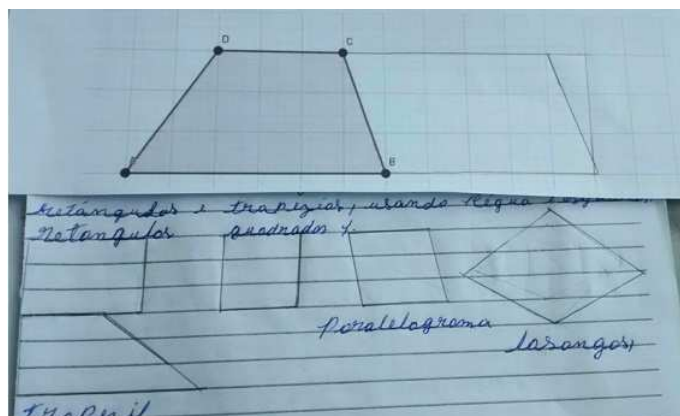 D C
A B
retângulos e trapézios, usando Régua
retangulos quadrados
Paralelograma
losangos,